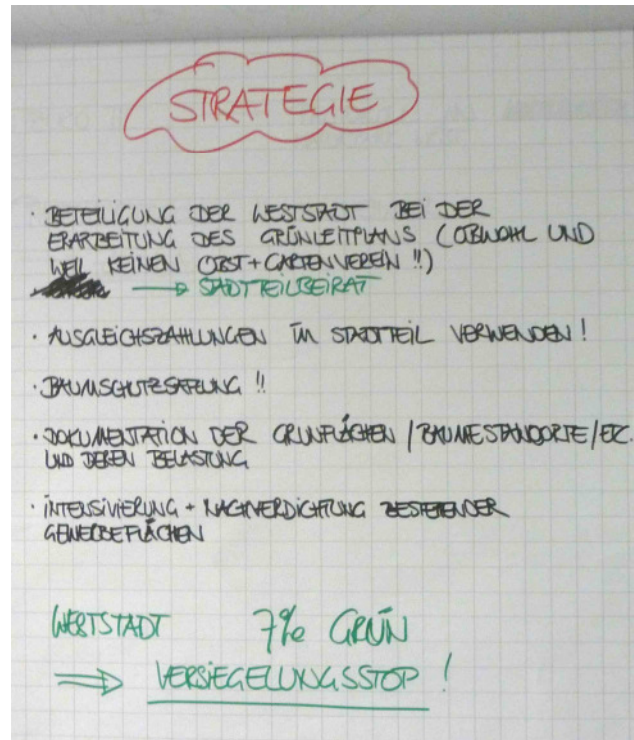 STRATEGIE
· BETEILIGUNG DER WESTSTADT BEI DER
ERARBEITUNG DES GRÜNLEITPLANS (OBWOHL UND
WEIL KEINEN OBST+GARTENVEREIN !!)
→ STADTTEILBEIRAT
· AUSGLEICHSZAHLUNGEN IM STADTTEIL VERWENDEN !
· BAUMSCHUTZSATZUNG !!
· DOKUMENTATION DER GRÜNFLÄCHEN / BÄUMESTANDORTE / ETC.
UND DEREN BELASTUNG
· INTENSIVIERUNG + NACHVERDICHTUNG BESTEHENDER
GEWERBEFLÄCHEN
WESTSTADT 7% GRÜN
⇒ VERSIEGELUNGSSTOP !